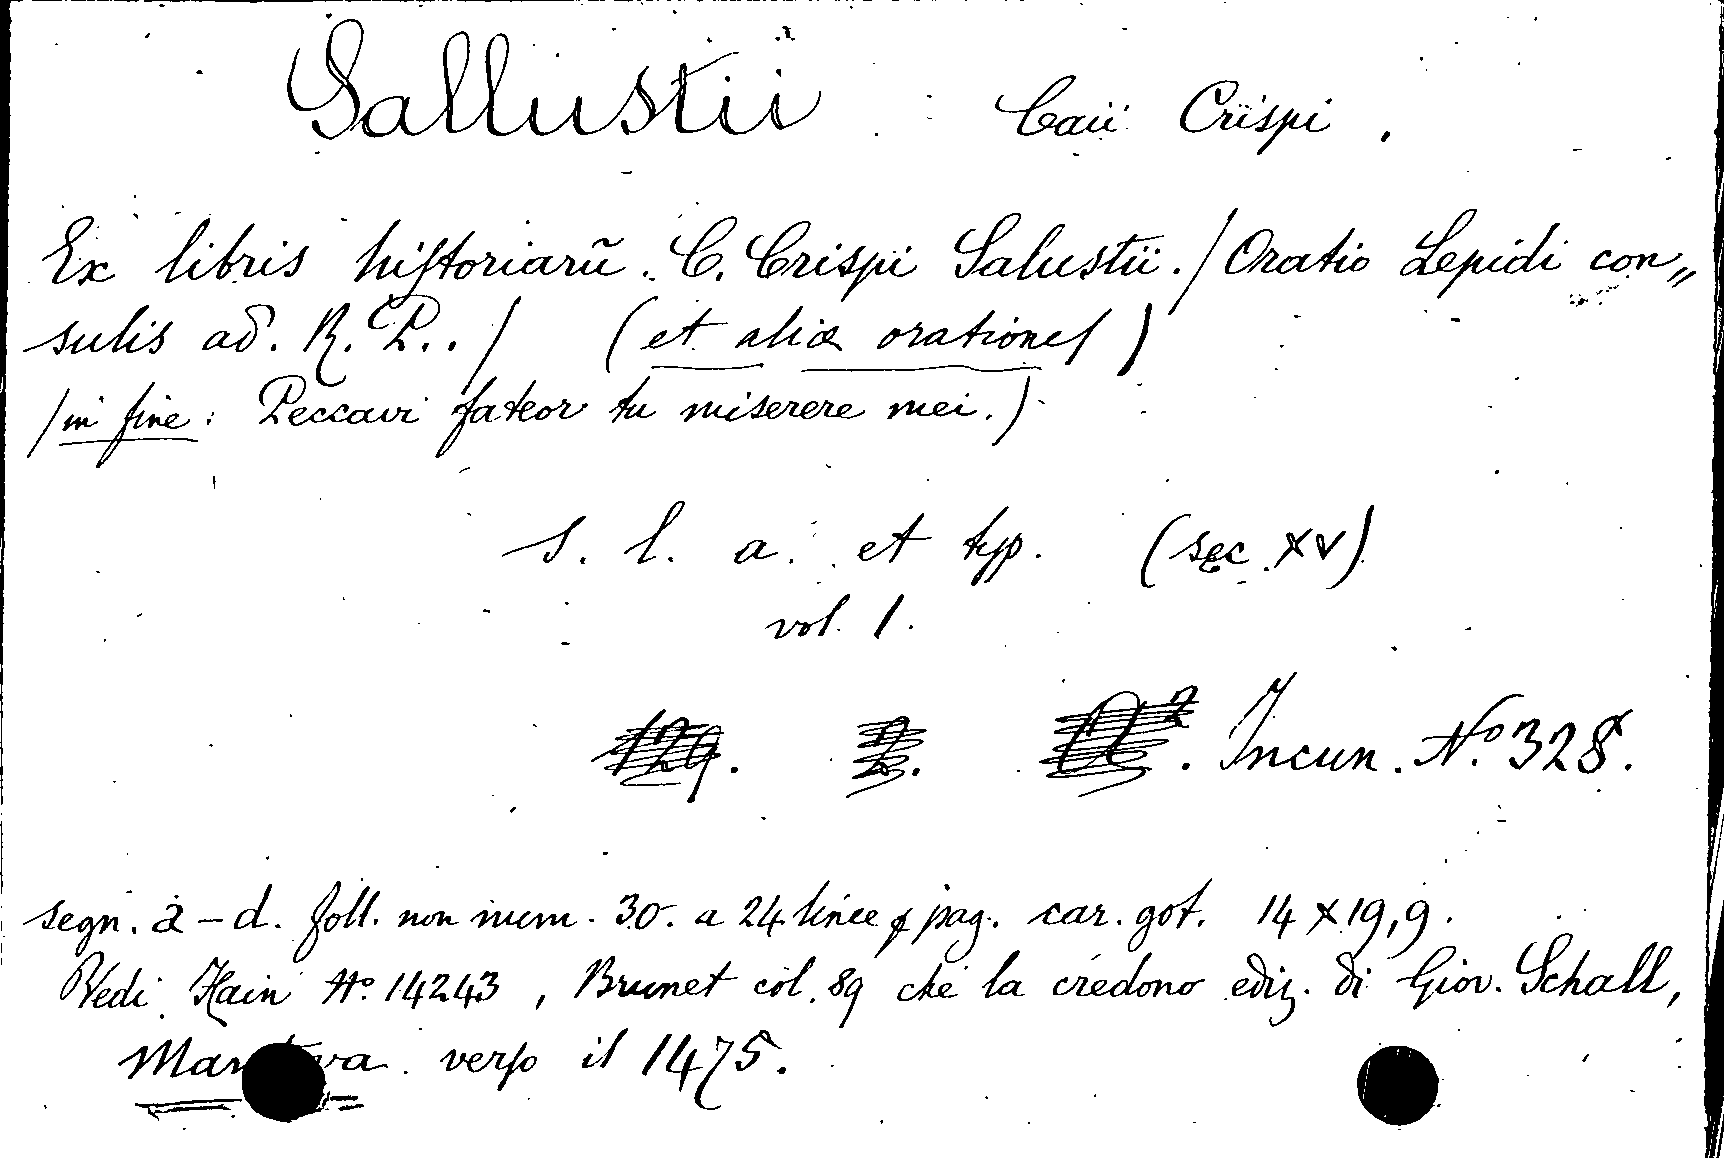 Sallustii Caii Crispi.
Ex libris hiſtoriarũ. C. Crispi Salustii. / Oratio Lepidi con„
sulis ad. R. P.. / (et aliæ orationeſ)
/in fine: Peccavi fateor tu miserere mei.)
S. l. a. et typ. (sec. XV)
vol. 1.
129. 2. Incun. Nº 328.
segn. a – d. foll. non num. 30. a 24 linee p pag. car. got. 14 × 19,9.
Vedi Hain Nº 14243, Brunet col. 89 che la credono ediz. di Giov. Schall,
Mantova verſo il 1475.